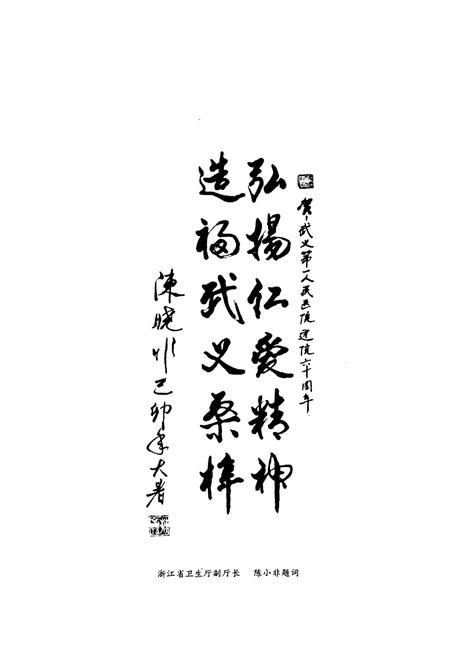 贺武义第一人民医院建院六十周年
弘揚仁爱精神
造福武义桑梓
陳曉非己卯年大暑
浙江省卫生厅副厅长 陈小非题词